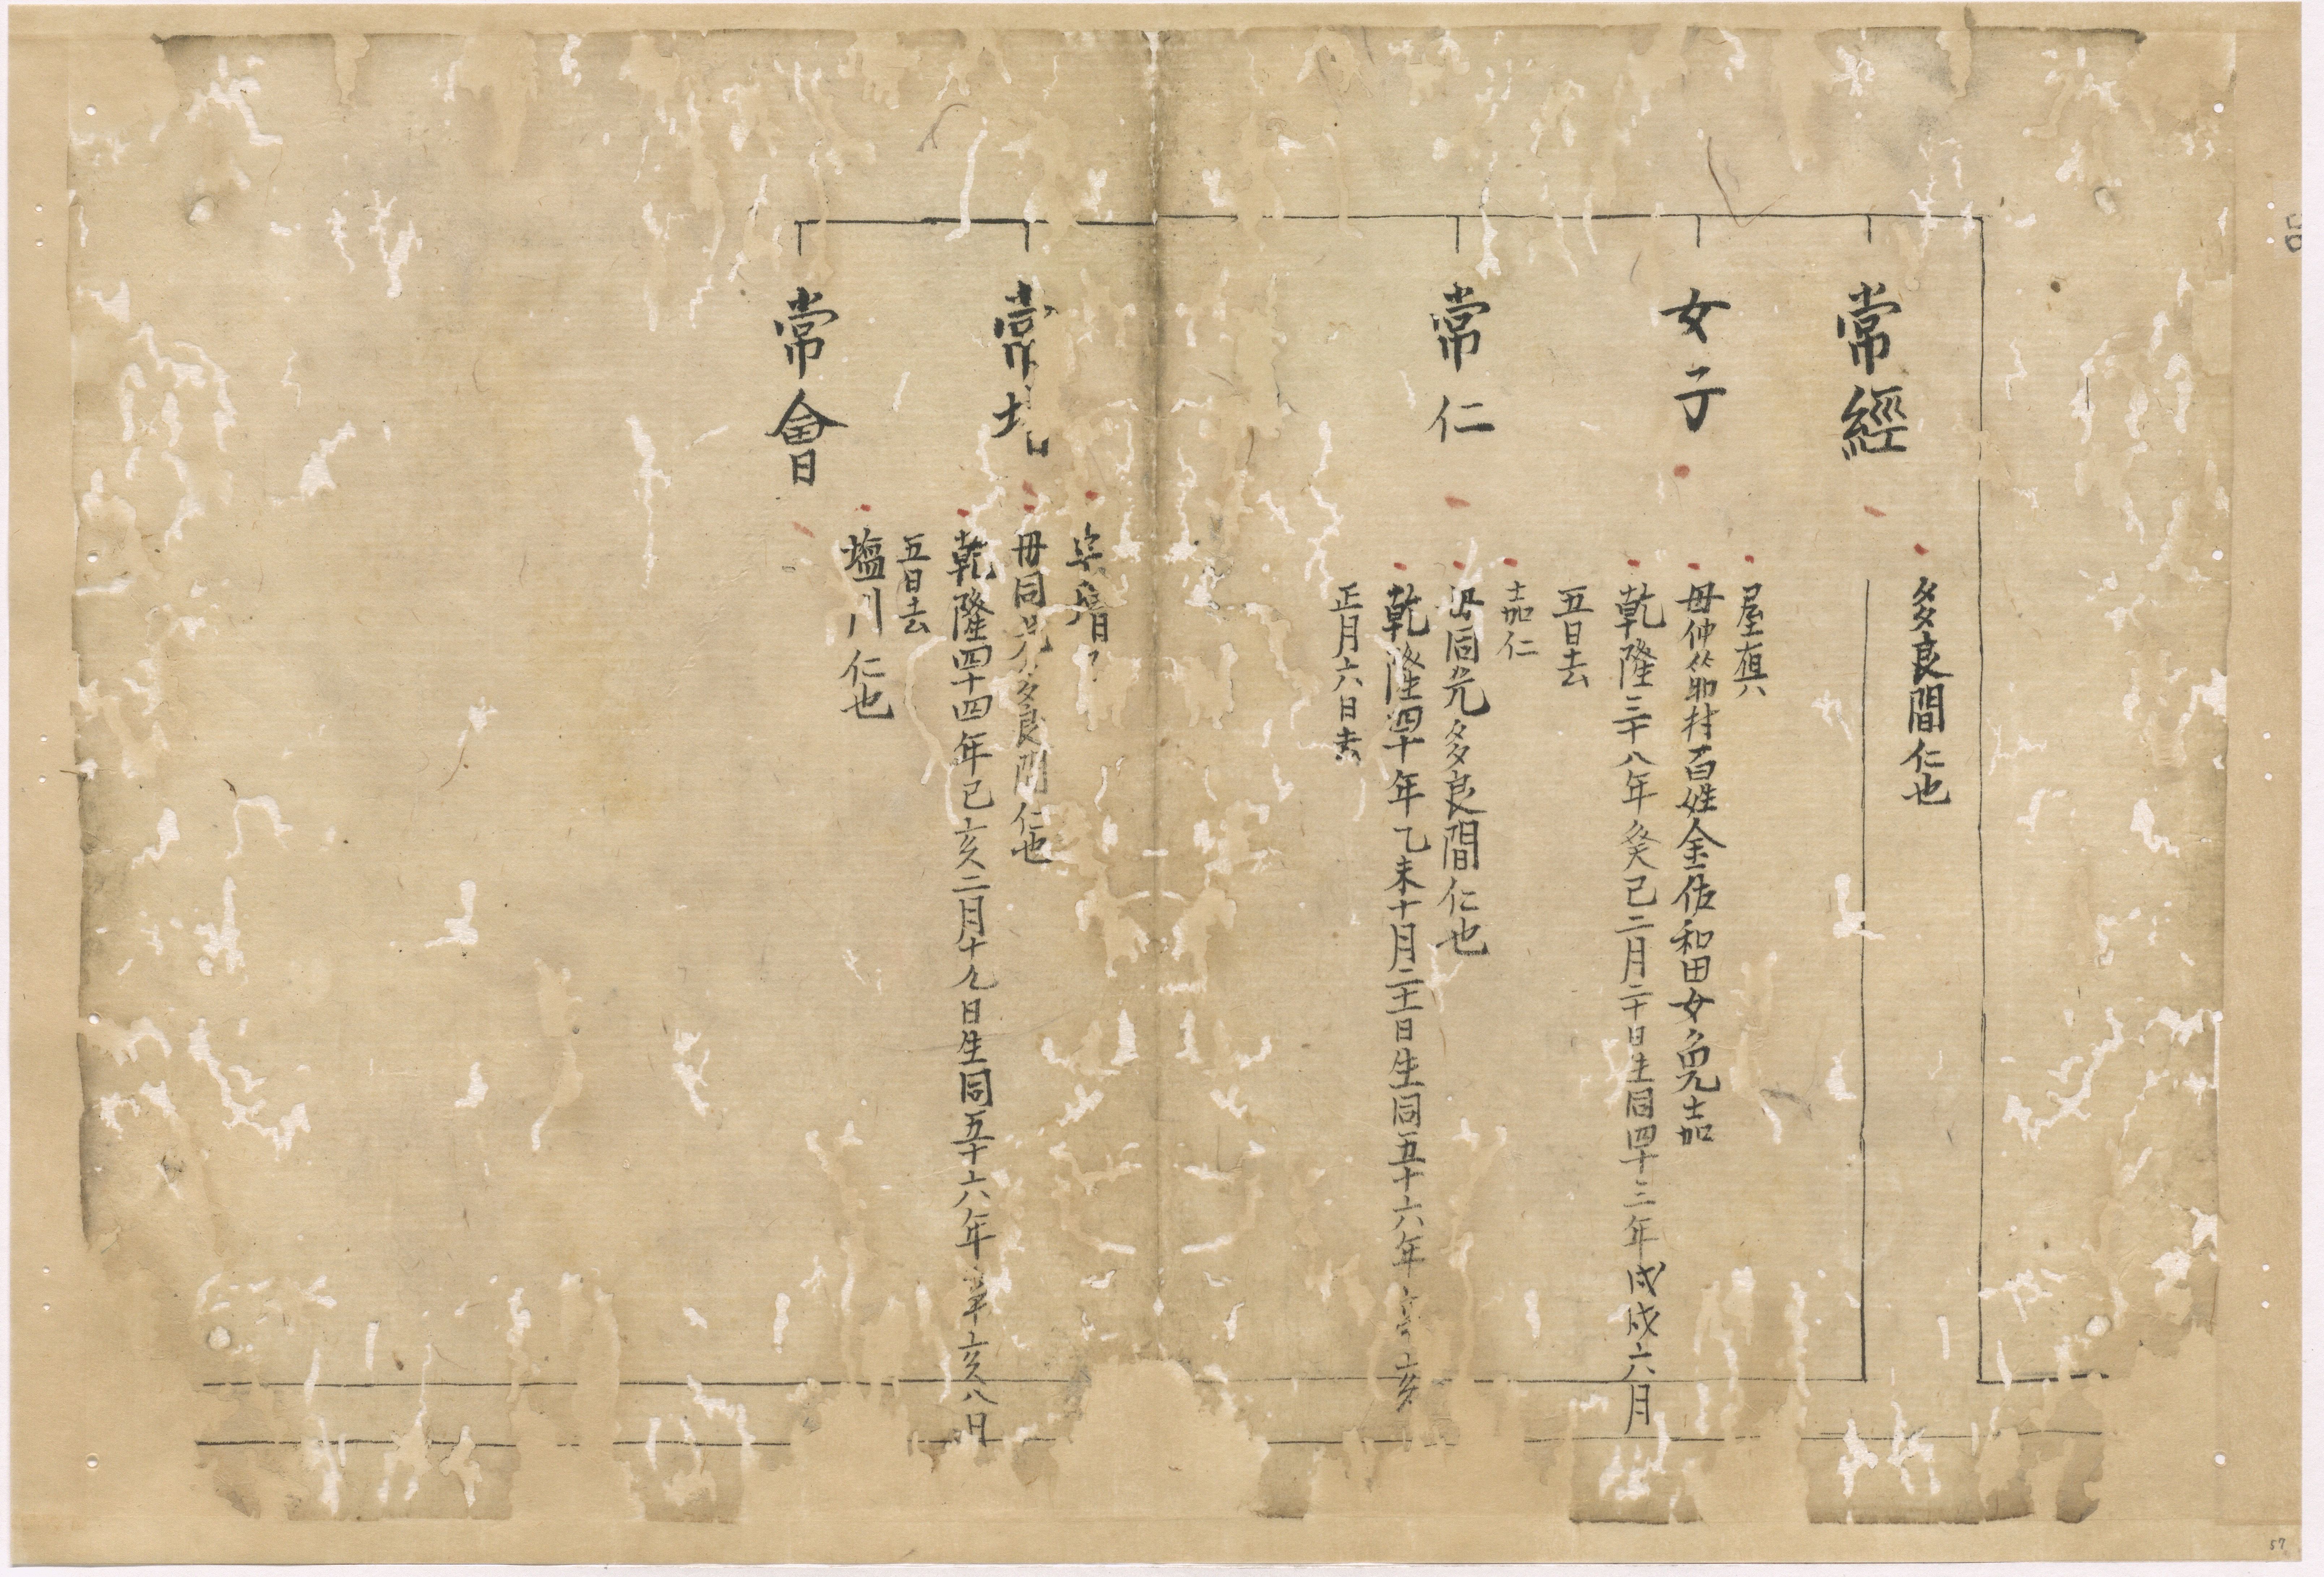 常經
多良間仁也
女子
屋
母仲筋村百姓金佐和田女免嘉
乾隆三十八年癸巳二月二十日生同四十三年戊戌六月
五日去
常仁
嘉仁
同兄多良間仁也
乾隆四十年乙未十月二十一日生同五十六年亥
正月六日去
常
母同兄多良間仁也
乾隆四十四年己亥二月十九日生同五十六年辛亥八月
五日去
常會
塩川仁也
57